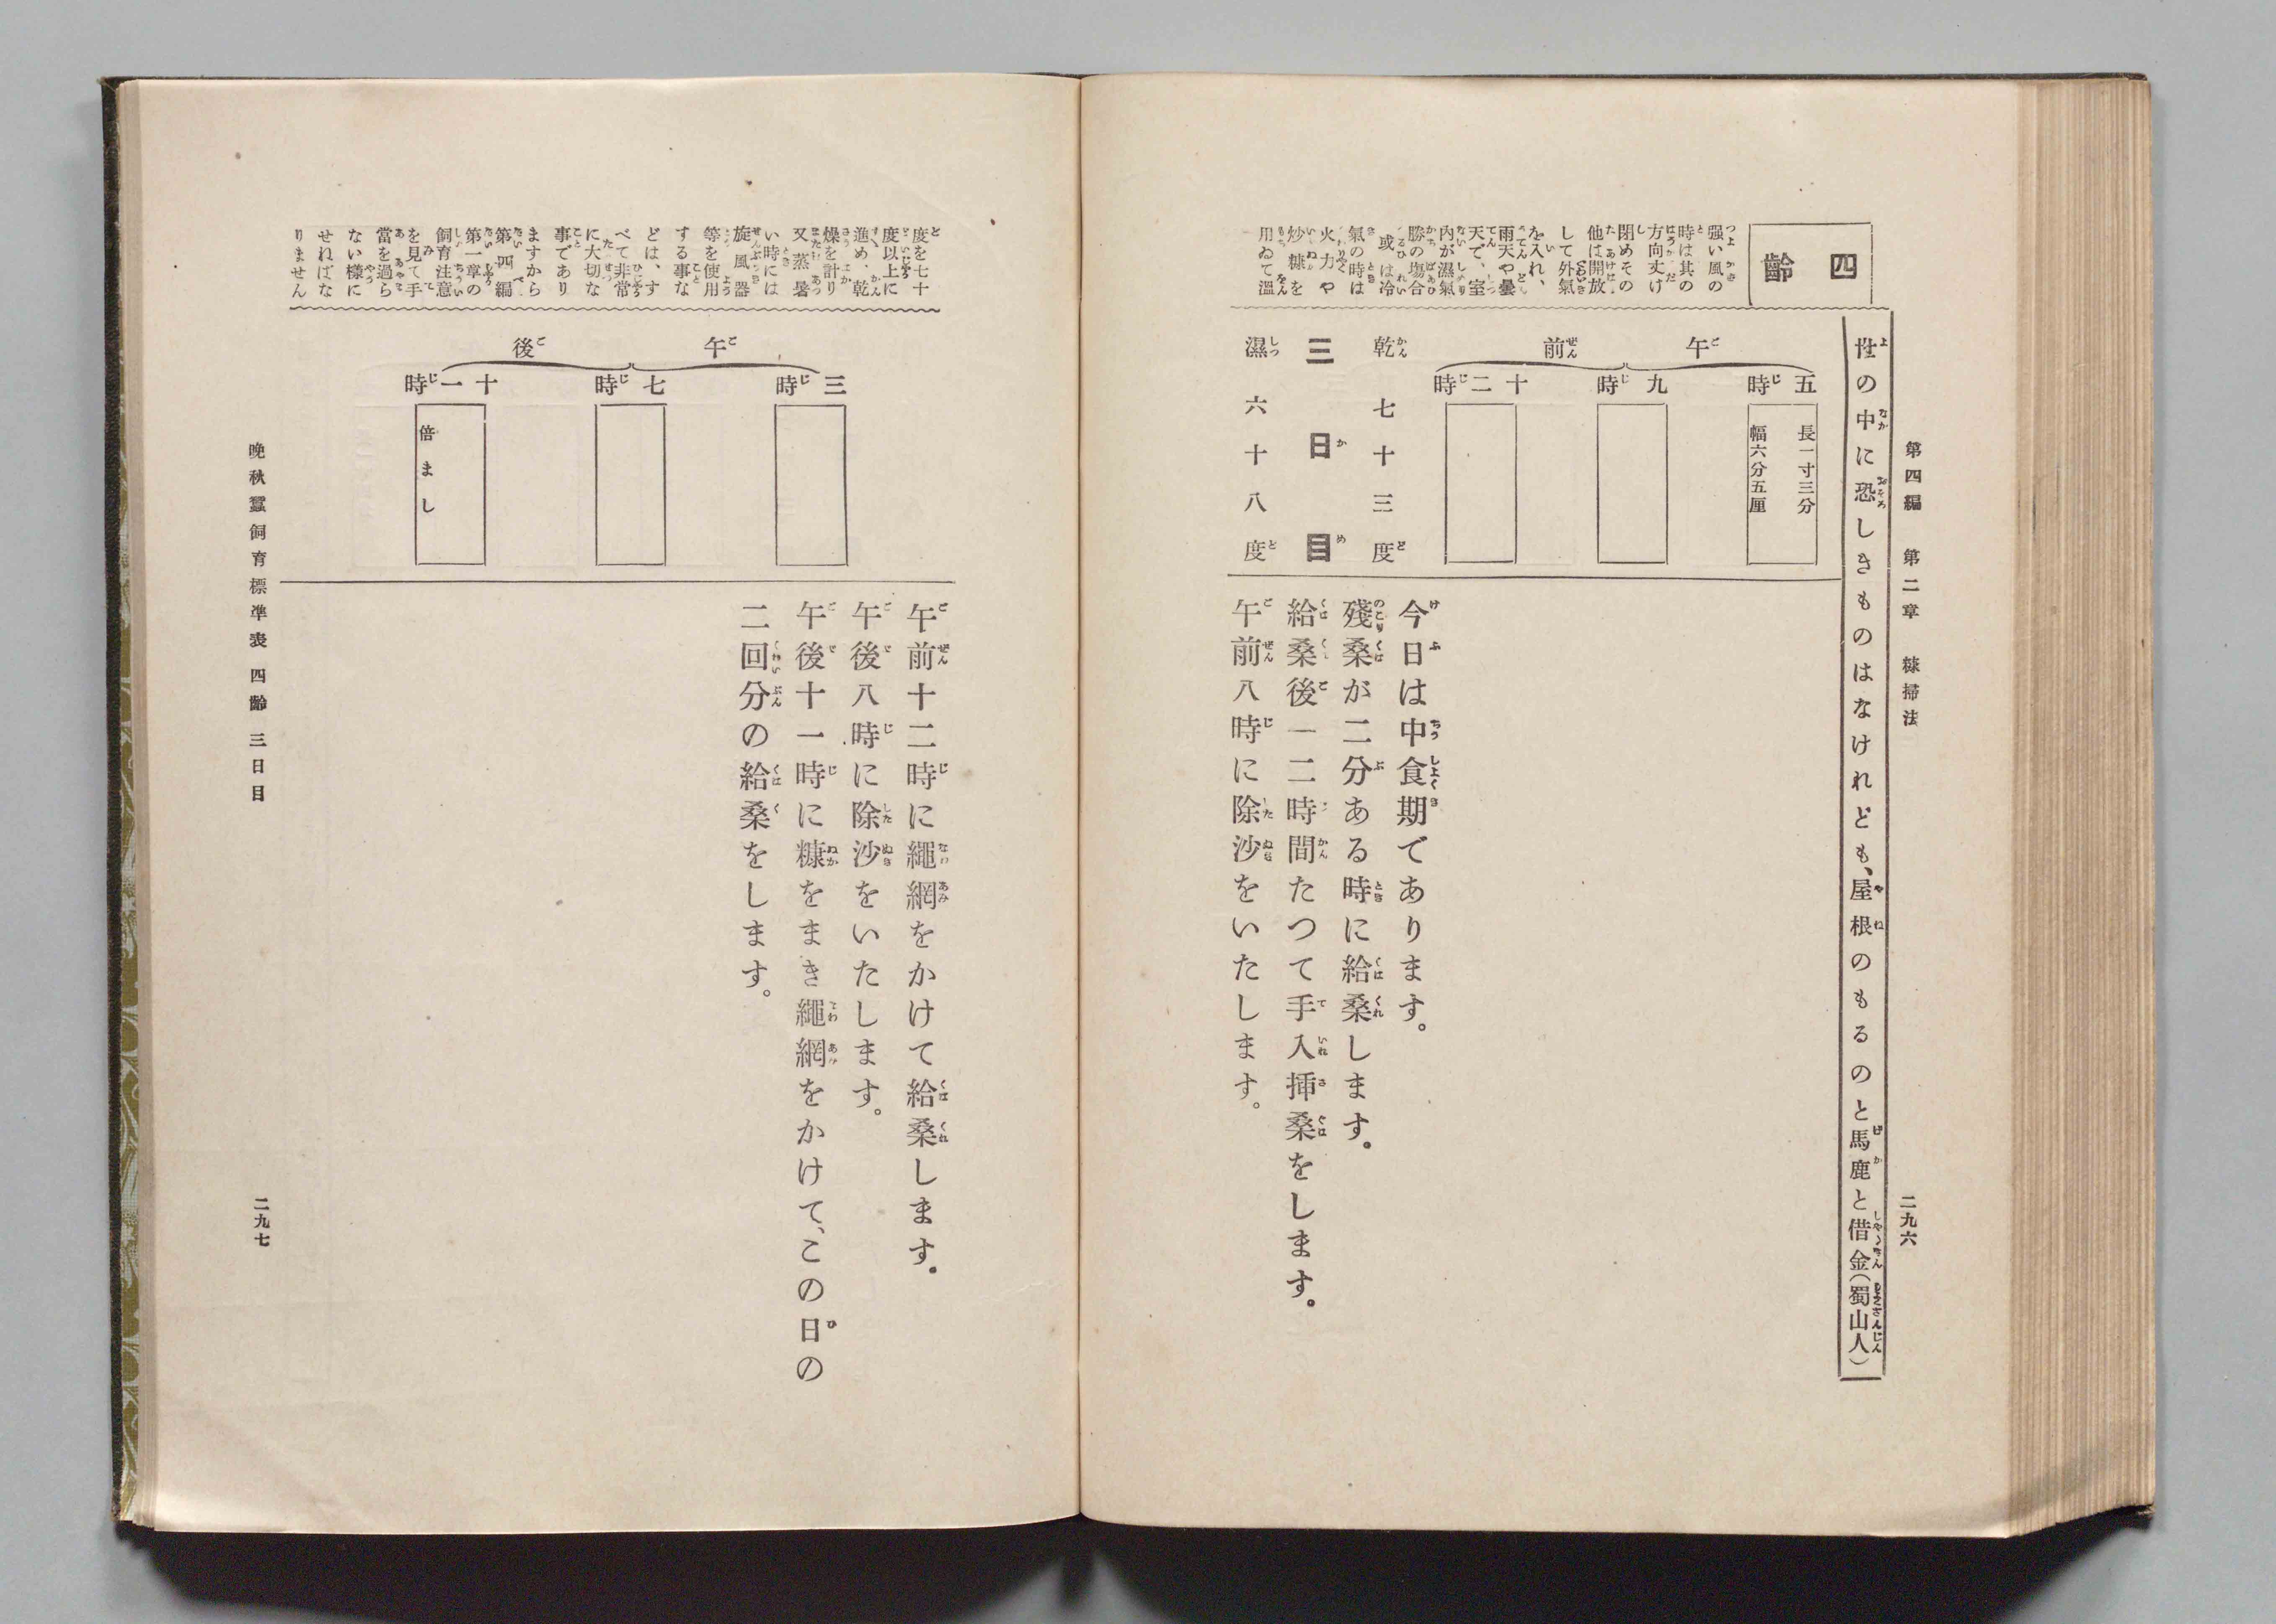 第四編　第二章　糠掃法
二九六
世の中に恐しきものはなけれども、屋根のもるのと馬鹿と借金（蜀山人）
四齡
强い風の
時は其の
方向丈け
閉めその
他は開放
して外氣
を入れ、
雨天や曇
天で、室
內が濕氣
勝の塲合
或は冷
氣の時は
火力や
炒糠を
用ゐて溫
午前
五時
長一寸三分
幅六分五厘
九時
十二時
乾　七十三度
三日目
濕　六十八度
今日は中食期であります。
殘桑が二分ある時に給桑します。
給桑後一二時間たつて手入挿桑をします。
午前八時に除沙をいたします。
度を七十
度以上に
進め、乾
燥を計り
又蒸暑
い時には
旋風器
等を使用
する事な
どは、す
べて非常
に大切な
事であり
ますから
第四編
第一章の
飼育注意
を見て、手
當を過ら
ない樣に
せねばな
りません
午後
三時
七時
十一時
倍まし
午前十二時に繩網をかけて給桑します。
午後八時に除沙をいたします。
午後十一時に糠をまき繩網をかけて、この日の
二回分の給桑をします。
晚秋蠶飼育標準表　四齡　三日目
二九七